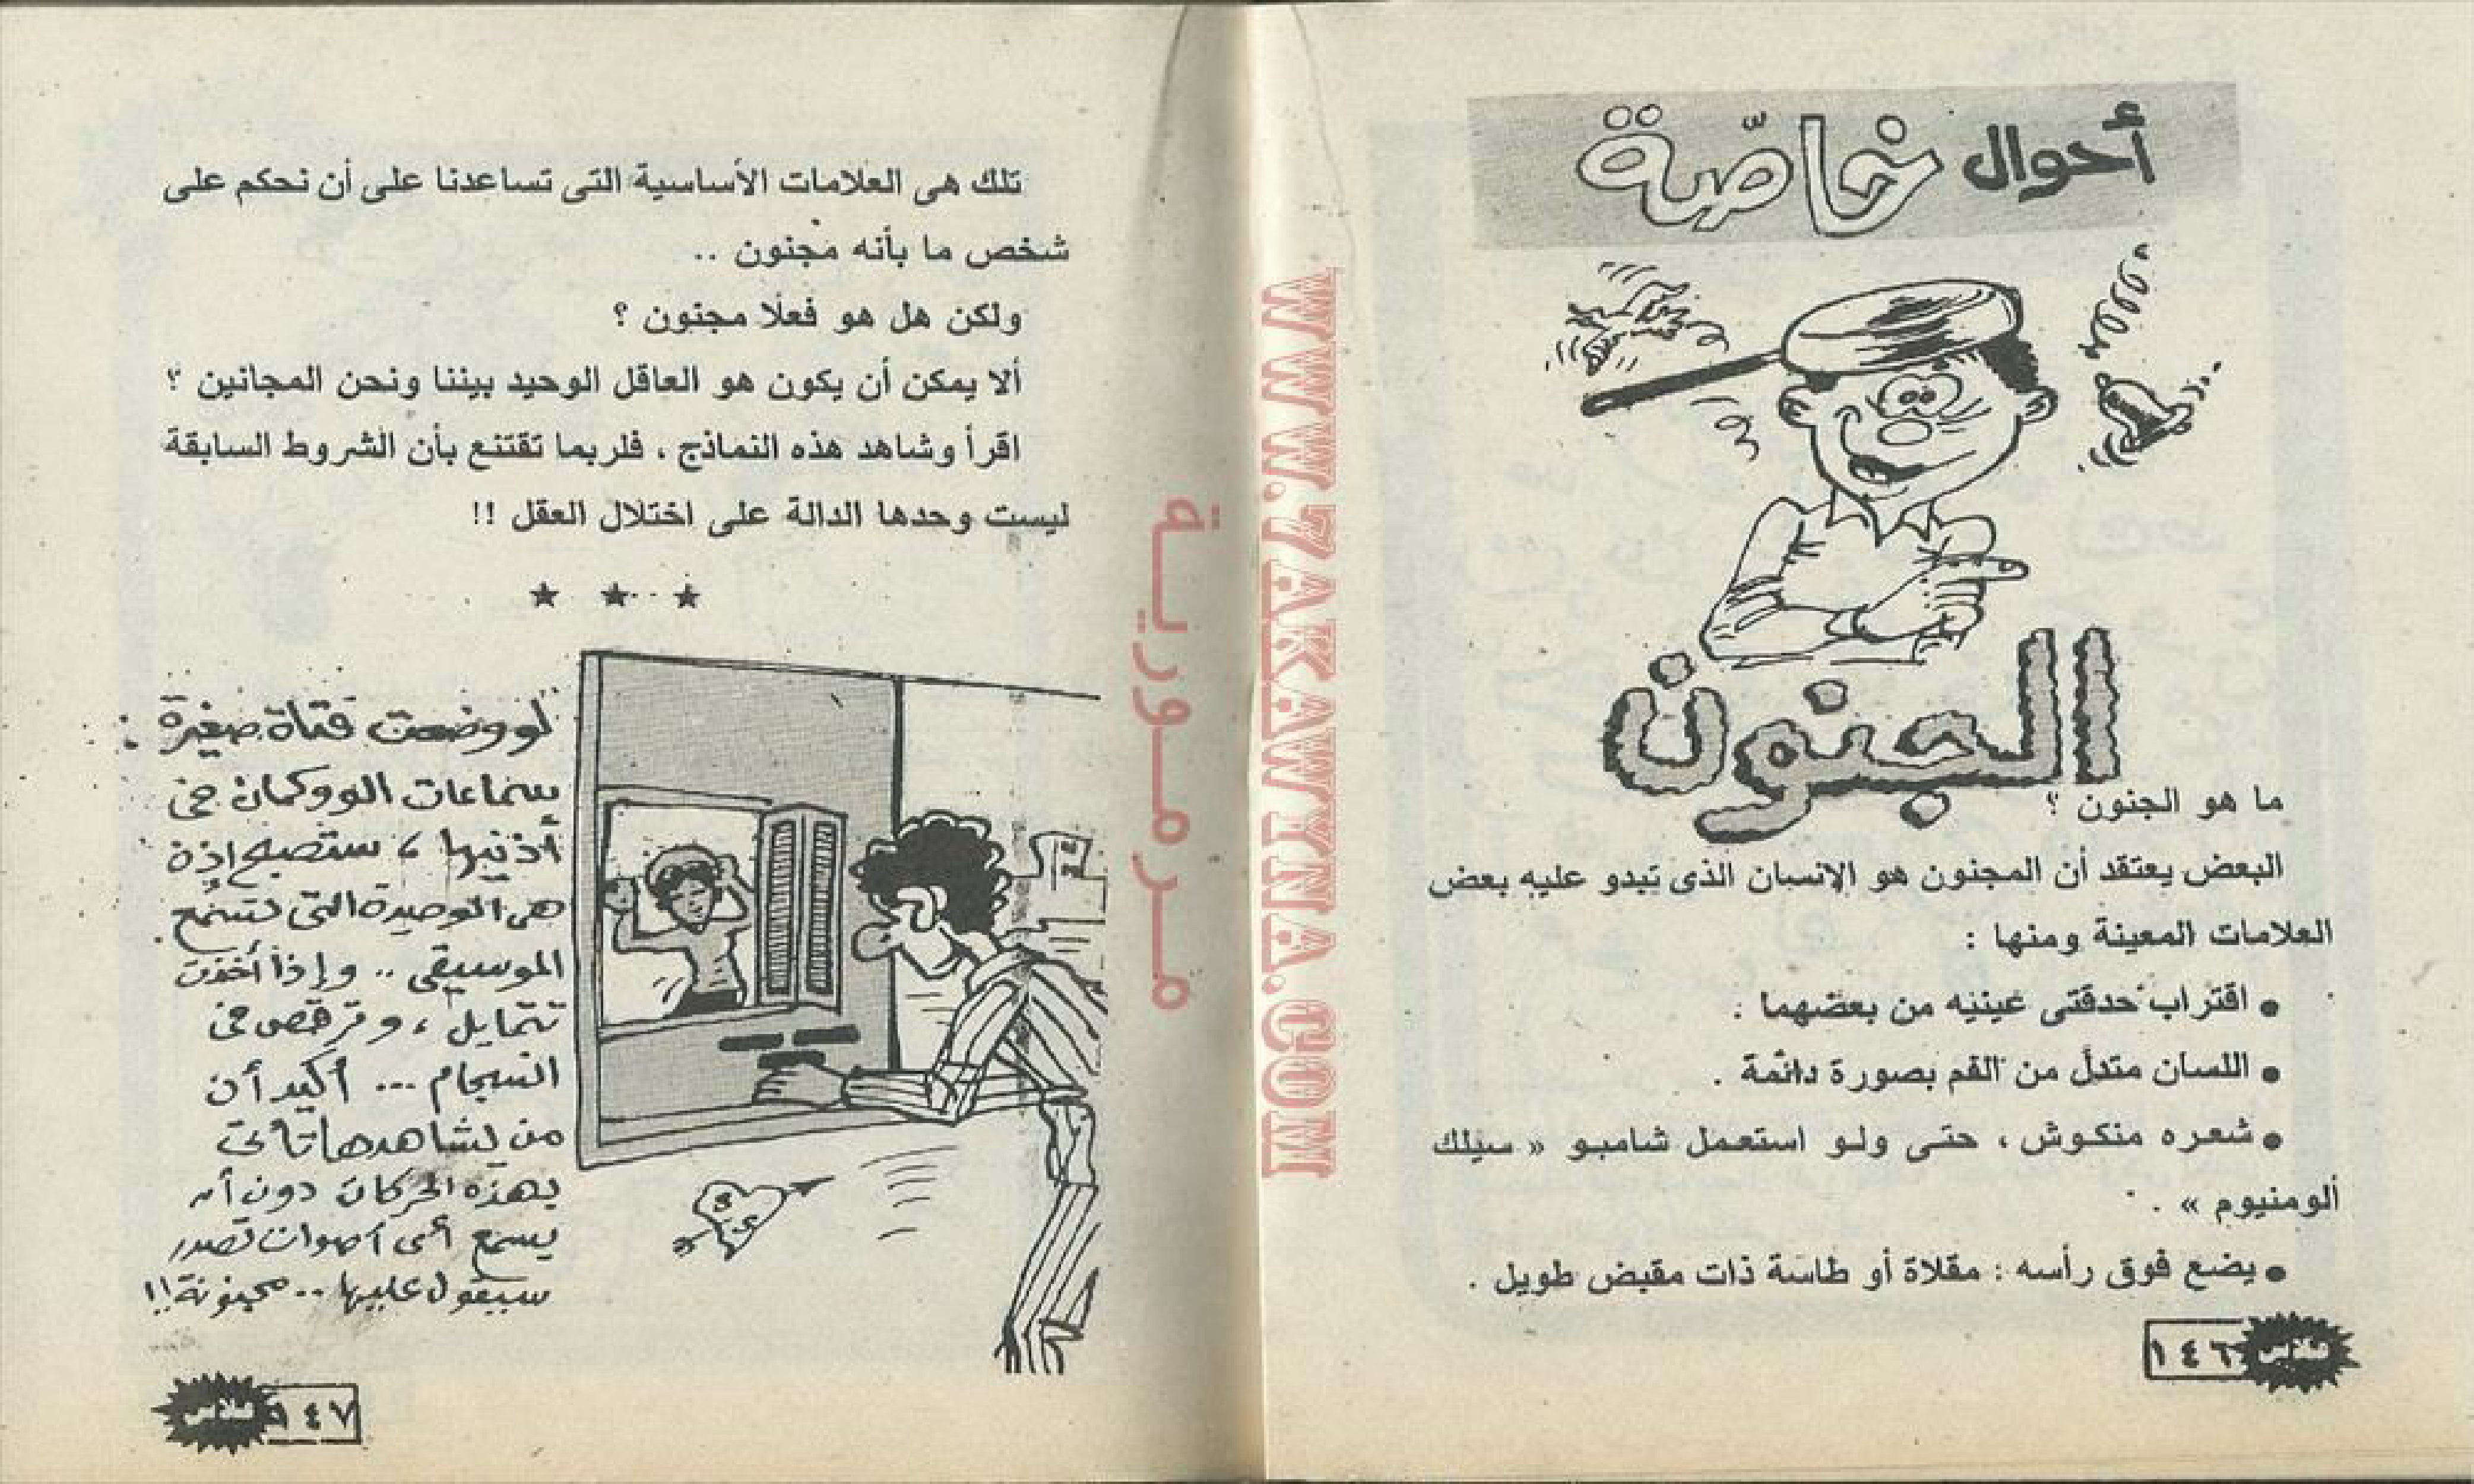 أحوال خاصّة
الجنون
ما هو الجنون ؟
البعض يعتقد أن المجنون هو الإنسان الذى تبدو عليه بعض
العلامات المعينة ومنها :
● اقتراب حدقتى عينيه من بعضهما .
● اللسان متدلّ من الفم بصورة دائمة .
● شعره منكوش ، حتى ولو استعمل شامبو « سيلك
ألومنيوم » .
● يضع فوق رأسه : مقلاة أو طاسة ذات مقبض طويل .
١٤٦
تلك هى العلامات الأساسية التى تساعدنا على أن نحكم على
شخص ما بأنه مجنون ..
ولكن هل هو فعلا مجنون ؟
ألا يمكن أن يكون هو العاقل الوحيد بيننا ونحن المجانين ؟
اقرأ وشاهد هذه النماذج ، فلربما تقتنع بأن الشروط السابقة
ليست وحدها الدالة على اختلال العقل !!
★ ★ ★
لو وضعت فتاة صغيرة
سماعات الووكمان فى
أذنيها ، ستصبح إذن
هى الوحيدة التى تسمع
الموسيقى .. وإذا أخذت
تتمايل ، وترقص فى
انسجام ... أكيد أن
من يشاهدها تأتى
بهذه الحركات دون أن
يسمع أى أصوات تصدر
سيقول عليها .. مجنونة !!
١٤٧
مرمورية
WWW.ZAKAWINNA.COM